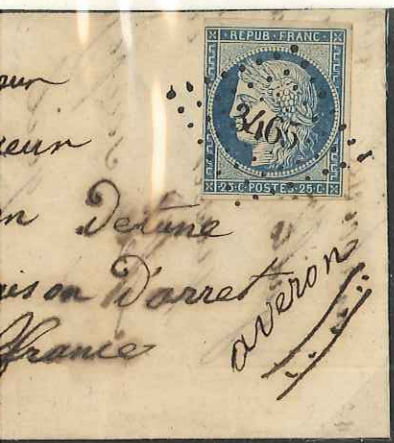 REPUB·FRANC·
3465
25·C·POSTES·25·C
ieur
Detune
ison D'arrest
ffrance
averon